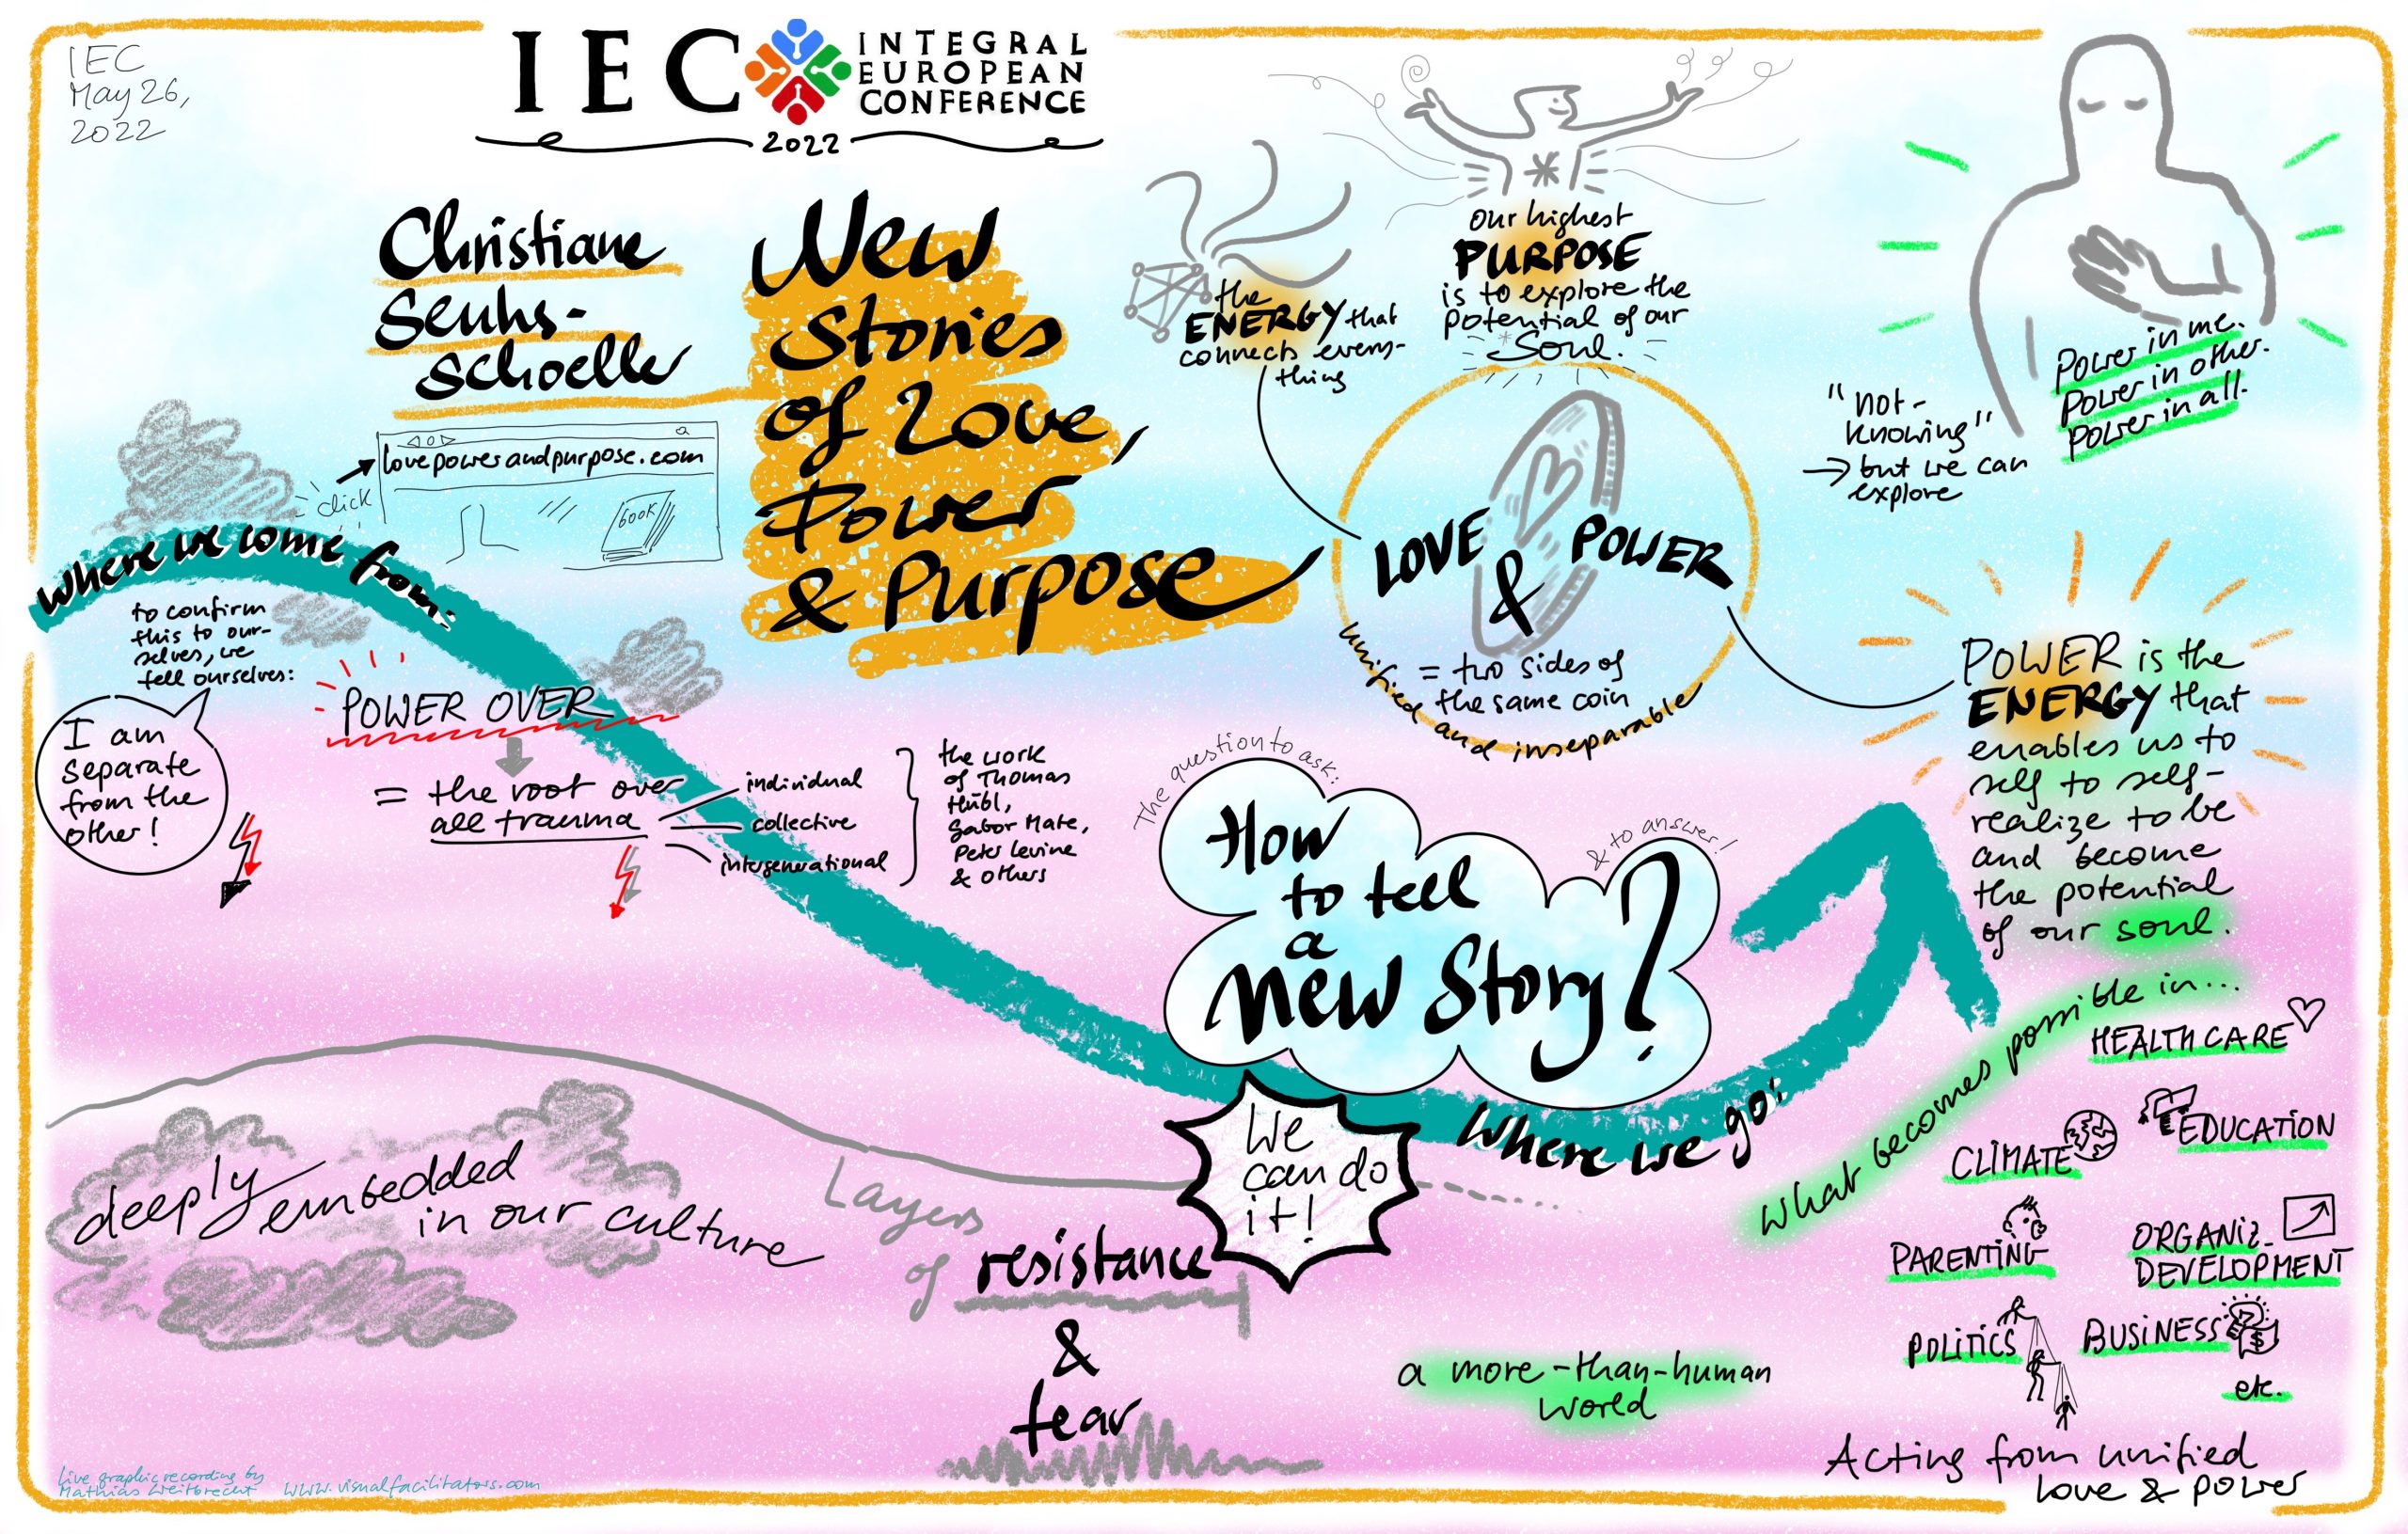 IEC
May 26,
2022
IEC
INTEGRAL
EUROPEAN
CONFERENCE
2022
Christiane
Seuhs-
Schoeller
lovepowerandpurpose.com
click
BOOK
New
Stories
of Love,
Power
& Purpose
the
ENERGY that
connects every-
thing
Our highest
PURPOSE
is to explore the
potential of our
Soul.
LOVE
&
POWER
= two sides of
the same coin
unified and inseparable
"not-
knowing"
→ but we can
explore
Power in me.
Power in other.
Power in all.
POWER is the
ENERGY that
enables us to
self to self-
realize to be
and become
the potential
of our soul.
where we come from:
to confirm
this to our-
selves, we
tell ourselves:
I am
separate
from the
other!
POWER OVER
= the root over
all trauma
individual
collective
intergenerational
the work
of Thomas
Hübl,
Gabor Mate,
Peter Levine
& others
The question to ask:
How
to tell
a
new Story?
& to answer!
We
can do
it!
Where we go:
deeply embedded
in our culture
Layers
of resistance
&
fear
What becomes possible in...
HEALTH CARE
EDUCATION
CLIMATE
PARENTING
ORGANIZ.
DEVELOPMENT
POLITICS
BUSINESS
$
etc.
a more-than-human
world
Acting from unified
love & power
Live graphic recording by
Mathias Weitbrecht www.visualfacilitators.com